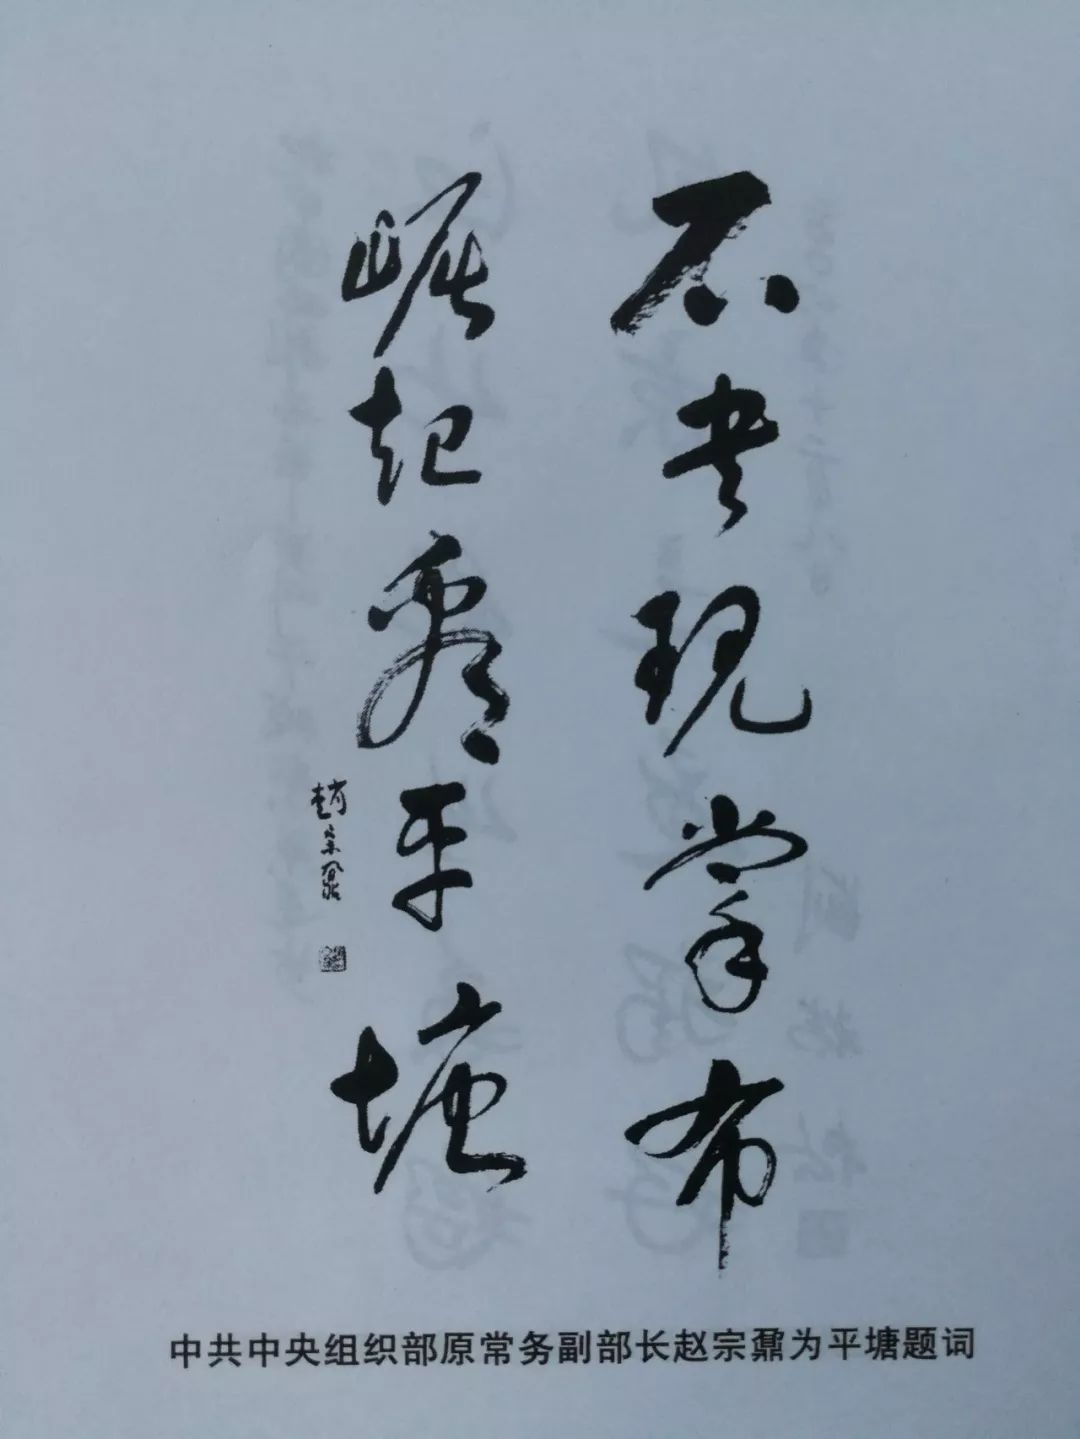 石书现掌布
崛起看平塘
趙宗鼐
中共中央组织部原常务副部长赵宗鼐为平塘题词